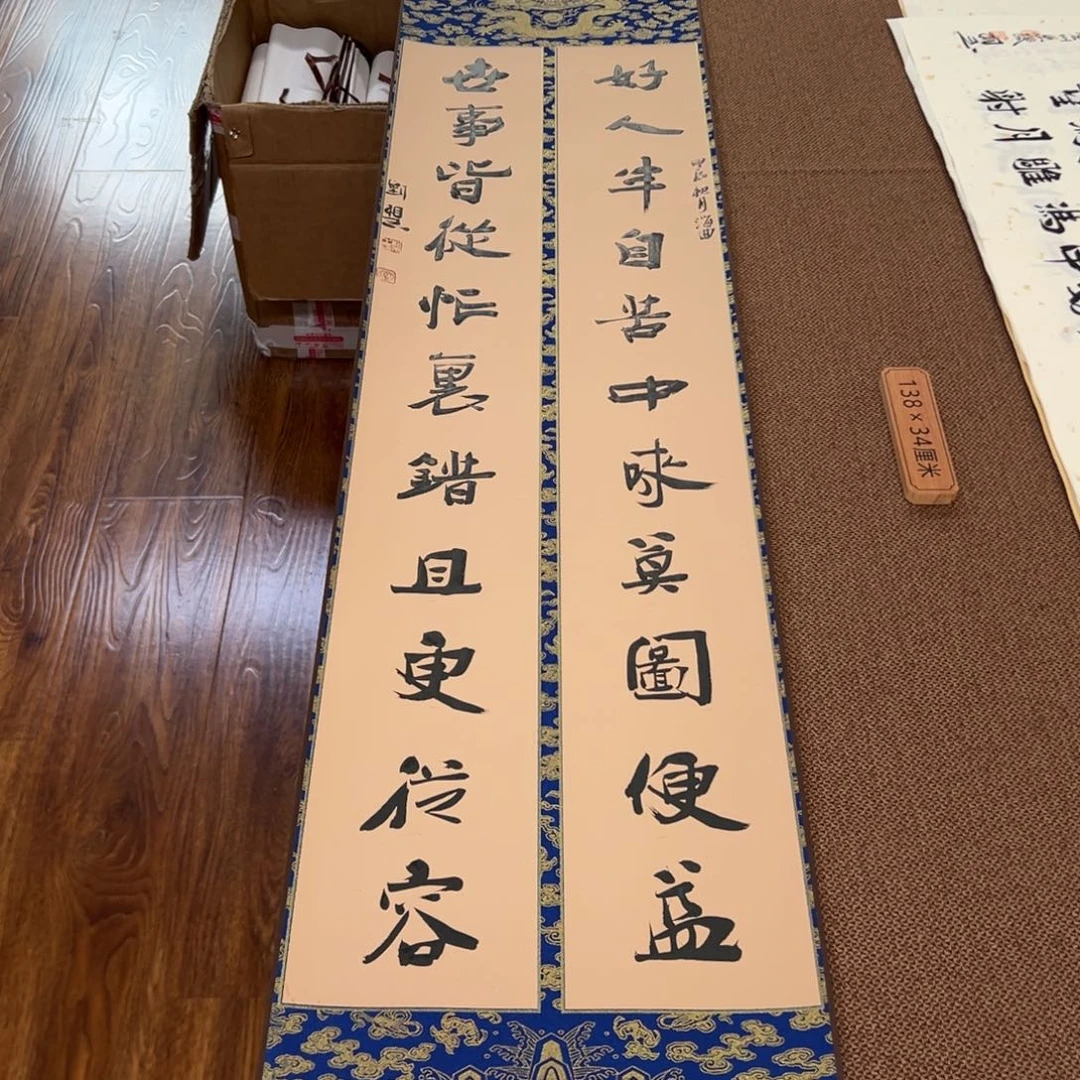 好人半自苦中來莫圖便益
甲辰秋月
世事皆從忙裏錯且更從容
劉
138×34厘米